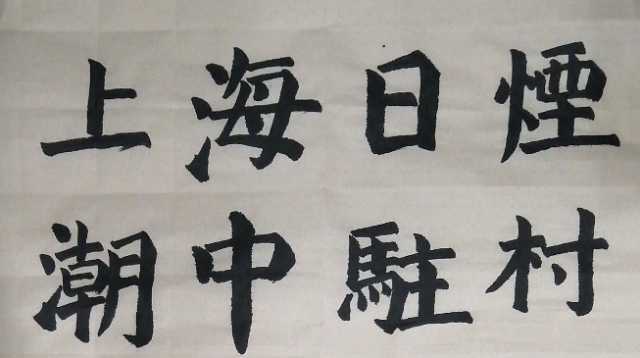 上海日煙
潮中駐村